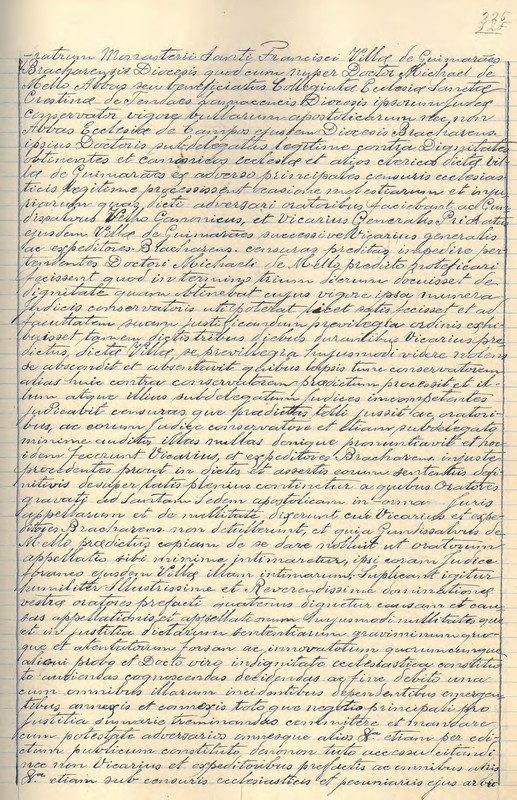 225
fratrum Monasterii Santi Francisci Villæ de Guimarães
Bracharensis Diocesis quod cum nuper Doctor Michael de
Mello Abbas seu beneficiatus Collegiata Eclesiæ Sanctæ
Crastinæ de Sendaes Lamacencis Diocesis ipsorum Judex
conservator vigore bullarum apostolicarum nec non
Abbas Ecclesiæ de Campos ejusdem Diocesis Bracharens.
ipsius Doctoris subdelegatus legitime contra Dignitates
obtinentes et canonicos ecclesiæ et alios clericos dictæ vil-
læ de Guimarães ex adverso principales censuris ecclesias-
ticis legitime processissent occasione molestiarum et inju-
riarum quas dicti adversari oratoribus faciebant ac Gun
disalvus Velho Canonicus, et Vicarius Generalis Prioratus
ejusdem Villæ de Guimarães successive Vicarius generalis
ac expeditores Bracharens. censuras preditas impedire per
tendentes Doctori Michaeli de Mello predicto notificari
fecissent quod in termino trium dierum docuisset de
dignitate quam obtinebat cujus vigore ipsa munera
judicis conservatoris uti poterat licet satis fecisset et ad
facultatem suam justificandum previlegia ordinis exhi-
buisset tamen dictis tribus diebus durantibus Vicarius pre
dictus, dictæ Villæ, se previllegia hujusmodi videre nolens
se abscondit et absentavit quibus lapsis tunc conservatorem
alias huic contra conservatorem prædictum processit et il-
lum atque illius subdelegatum judices incompetentes
judicabit censuras que prædictas tolli jussit ac oratori-
bus, ac eorum Judice conservatore et etiam subdelegato
minime auditis illas nullas denique pronuntiavit et hoc
idem fecerunt Vicarius, et expeditores Bracharens. injuste
procedentes prout in dictis et assertis eorum sententiis defi
nitivis desuper latis plenius continetur a quibus Oratores
gravati ad Santam Sedem apostolicam in forma juris
appellarunt et de nullitate dixerunt cui Vicarius et expe
ditores Bracharens. non detullerunt, et quia Gundissalvus de
Mello prædictus copiam de se dare noluit ut oratorum
appellatio sibi minime intimaretur, ipsi coram Judice
foraneo ejusdem Villæ illam intimarunt; Suplicant igitur
humiliter Illustrissime et Reverendissime dominationæ
vestræ oratores prefacti quatenus dignetur causam et cau-
sas appellationis et appellationum hujusmodi nullitatis que
et in justitia dictarum sententiarum graviminum quo-
que et atentatorum forsan ac innovatorum quorumcunque
alicui probo et Docto viro indignitate ecclesiastica constitu-
to audiendas cognoscendas decidendas ac fine debito una
cum omnibus illarum incidentibus dependentibus emergen
tibus annexis et connexis toto que negotio principali pro
justitia sumarie treminandas committere et mandare
cum potestate adversarios omnesque alios &ª etiam per edi-
ctum publicum constituto de non tuto accessu citandi
nec non Vicarius et expeditoribus prefactis ac omnibus aliis
&ª etiam sub censuris ecclesiasticis et pecuniariis ejus arbi